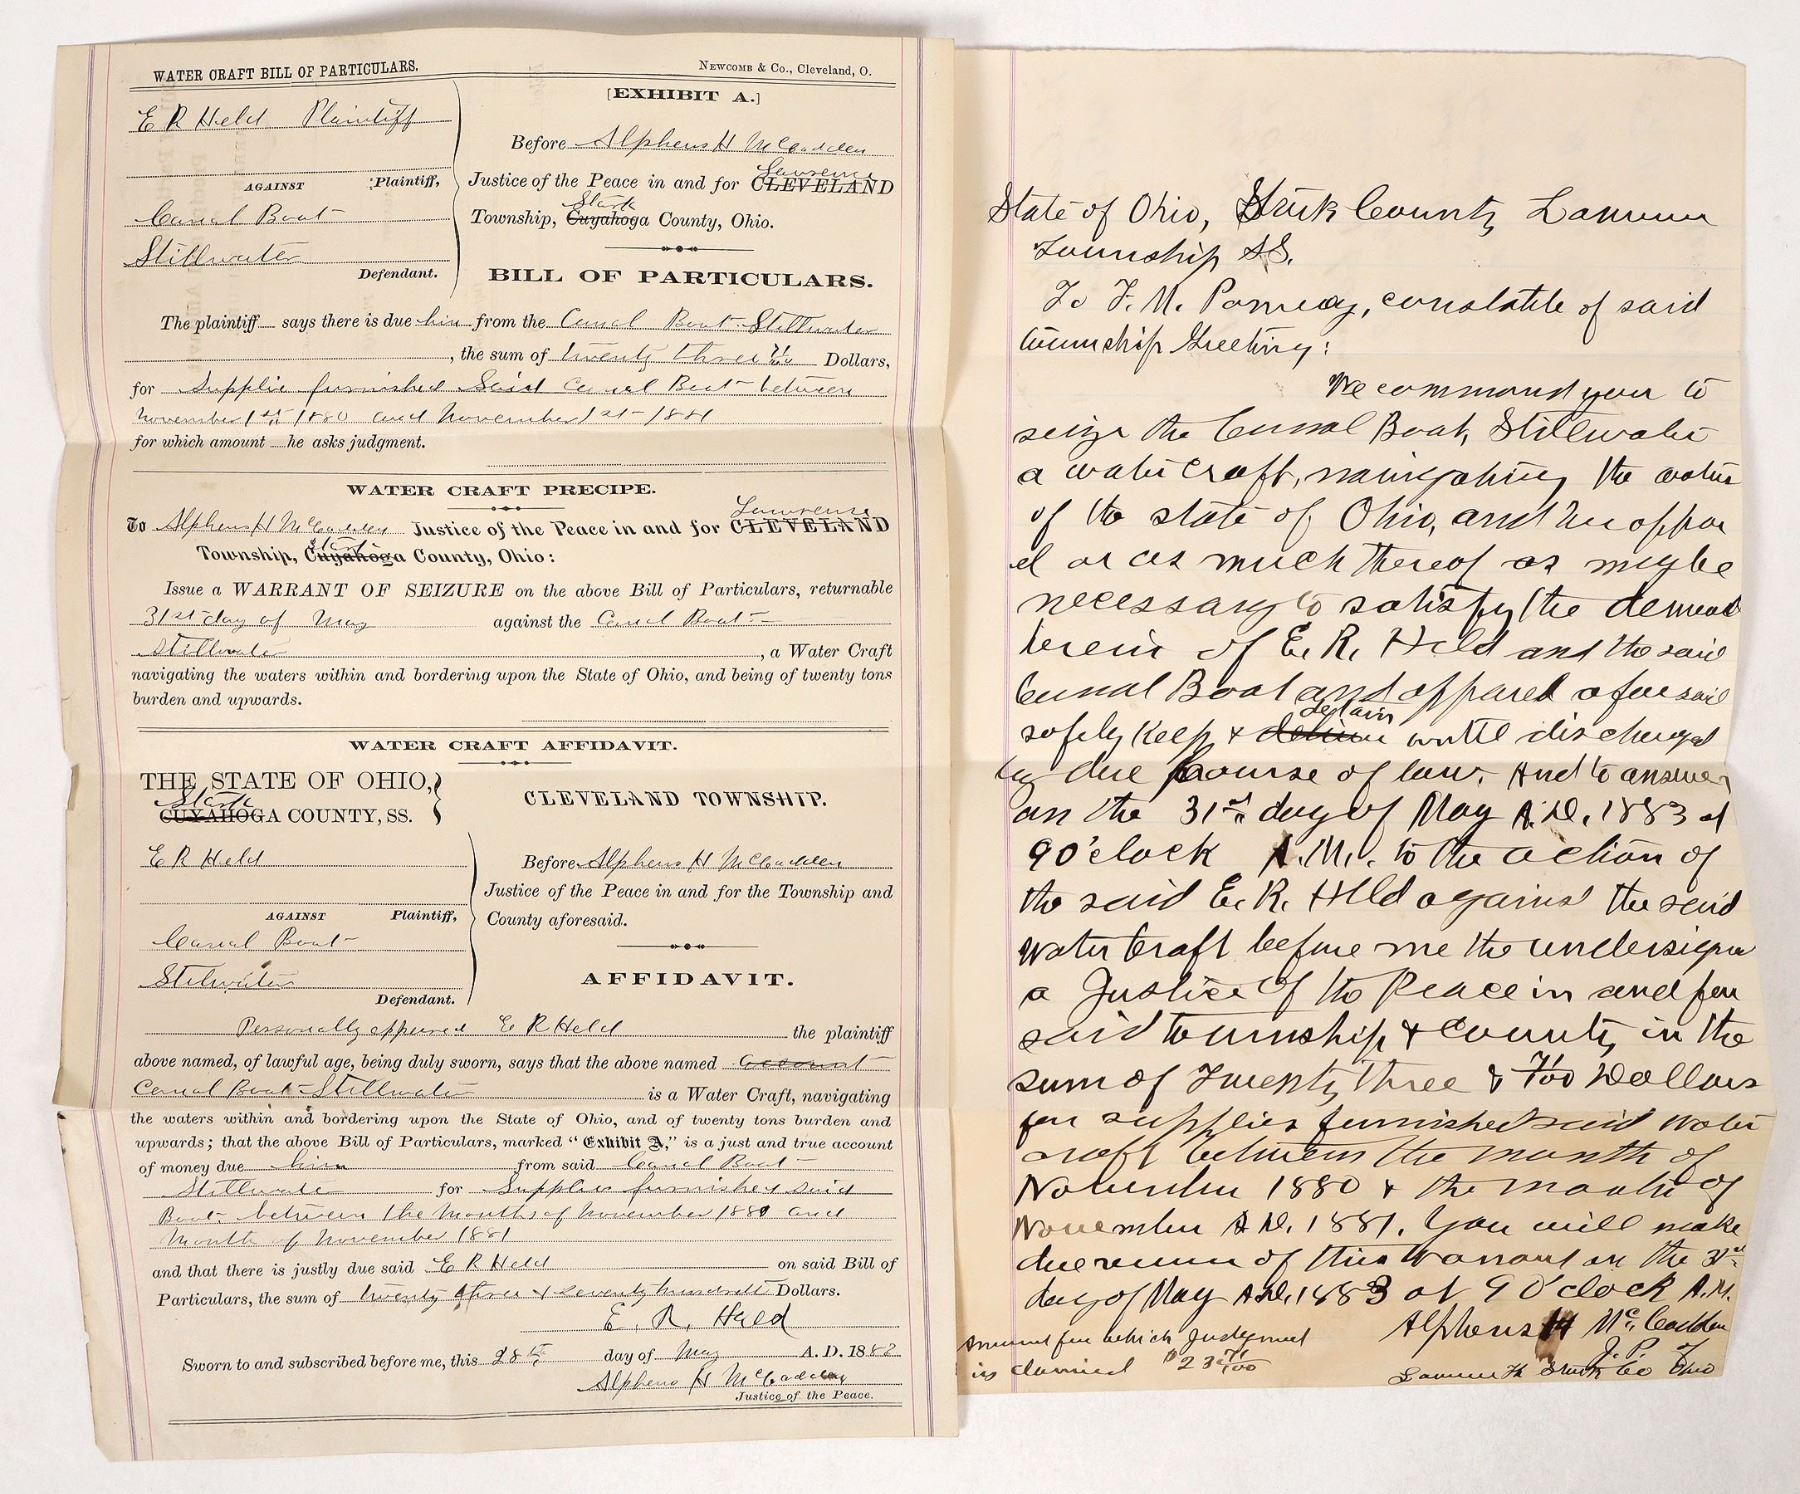 WATER CRAFT BILL OF PARTICULARS.
NEWCOMB & Co., Cleveland, O.
E R Held Plaintiff
Plaintiff,
AGAINST
Canal Boat
Stillwater
Defendant.
[EXHIBIT A.]
Before Alpheus H McCadden
Lawrence
Justice of the Peace in and for CLEVELAND
Stark
Township, Cuyahoga County, Ohio.
BILL OF PARTICULARS.
The plaintiff says there is due him from the Canal Boat Stillwater
, the sum of twenty three Dollars,
for Supplie furnished Said Canal Boat between
November 1st 1880 and November 1st 1881
for which amount he asks judgment.
WATER CRAFT PRECIPE.
Lawrence
To Alpheus H McCadden Justice of the Peace in and for CLEVELAND
Stark
Township, Cuyahoga County, Ohio:
Issue a WARRANT OF SEIZURE on the above Bill of Particulars, returnable
31st day of May against the Canal Boat
Stillwater , a Water Craft
navigating the waters within and bordering upon the State of Ohio, and being of twenty tons
burden and upwards.
WATER CRAFT AFFIDAVIT.
THE STATE OF OHIO,
Stark
CUYAHOGA COUNTY, SS.
CLEVELAND TOWNSHIP.
E R Held
Plaintiff,
AGAINST
Canal Boat
Stilwater
Defendant.
Before Alpheus H McCadden
Justice of the Peace in and for the Township and
County aforesaid.
AFFIDAVIT.
Personally appeared E R Held the plaintiff
above named, of lawful age, being duly sworn, says that the above named account
Canal Boat Stillwater is a Water Craft, navigating
the waters within and bordering upon the State of Ohio, and of twenty tons burden and
upwards; that the above Bill of Particulars, marked "Exhibit A," is a just and true account
of money due him from said Canal Boat
Stillwater for Supplies furnished said
Boat between the months of November 1880 and
Month of November 1881
and that there is justly due said E R Held on said Bill of
Particulars, the sum of twenty three & seventy hundredt Dollars.
E. R. Held
Sworn to and subscribed before me, this 28th day of May A. D. 1882
Alpheus H McCadden
Justice of the Peace.
State of Ohio, Stark County Lawrence
Township SS.
To F. M. Pomroy, constable of said
township Greeting:
We command you to
seize the Canal Boat, Stillwater
a water craft, navigating the waters
of the state of Ohio, and her appar
el or as much thereof as maybe
necessary to satisfy the demand
herein of E. R. Held and the said
Canal Boat and apparel aforesaid
detain
safely keep & until discharged
by due course of law. And to answer
on the 31st day of May A.D. 1883 at
9 O'clock A.M. to the action of
the said E. R. Held against the said
water craft before me the undersigned
a Justice of the Peace in and for
said township & county in the
sum of Twenty three & 71/100 Dollars
for supplies furnished said water
craft between the month of
November 1880 & the month of
November A.D. 1881. You will make
due return of this warrant on the 31st
day of May A.D. 1883 at 9 O'clock A.M.
Alpheus H McCadden
J. P.
Lawrence Tp Stark Co Ohio
Amount for which Judgment
is claimed $23 71/100